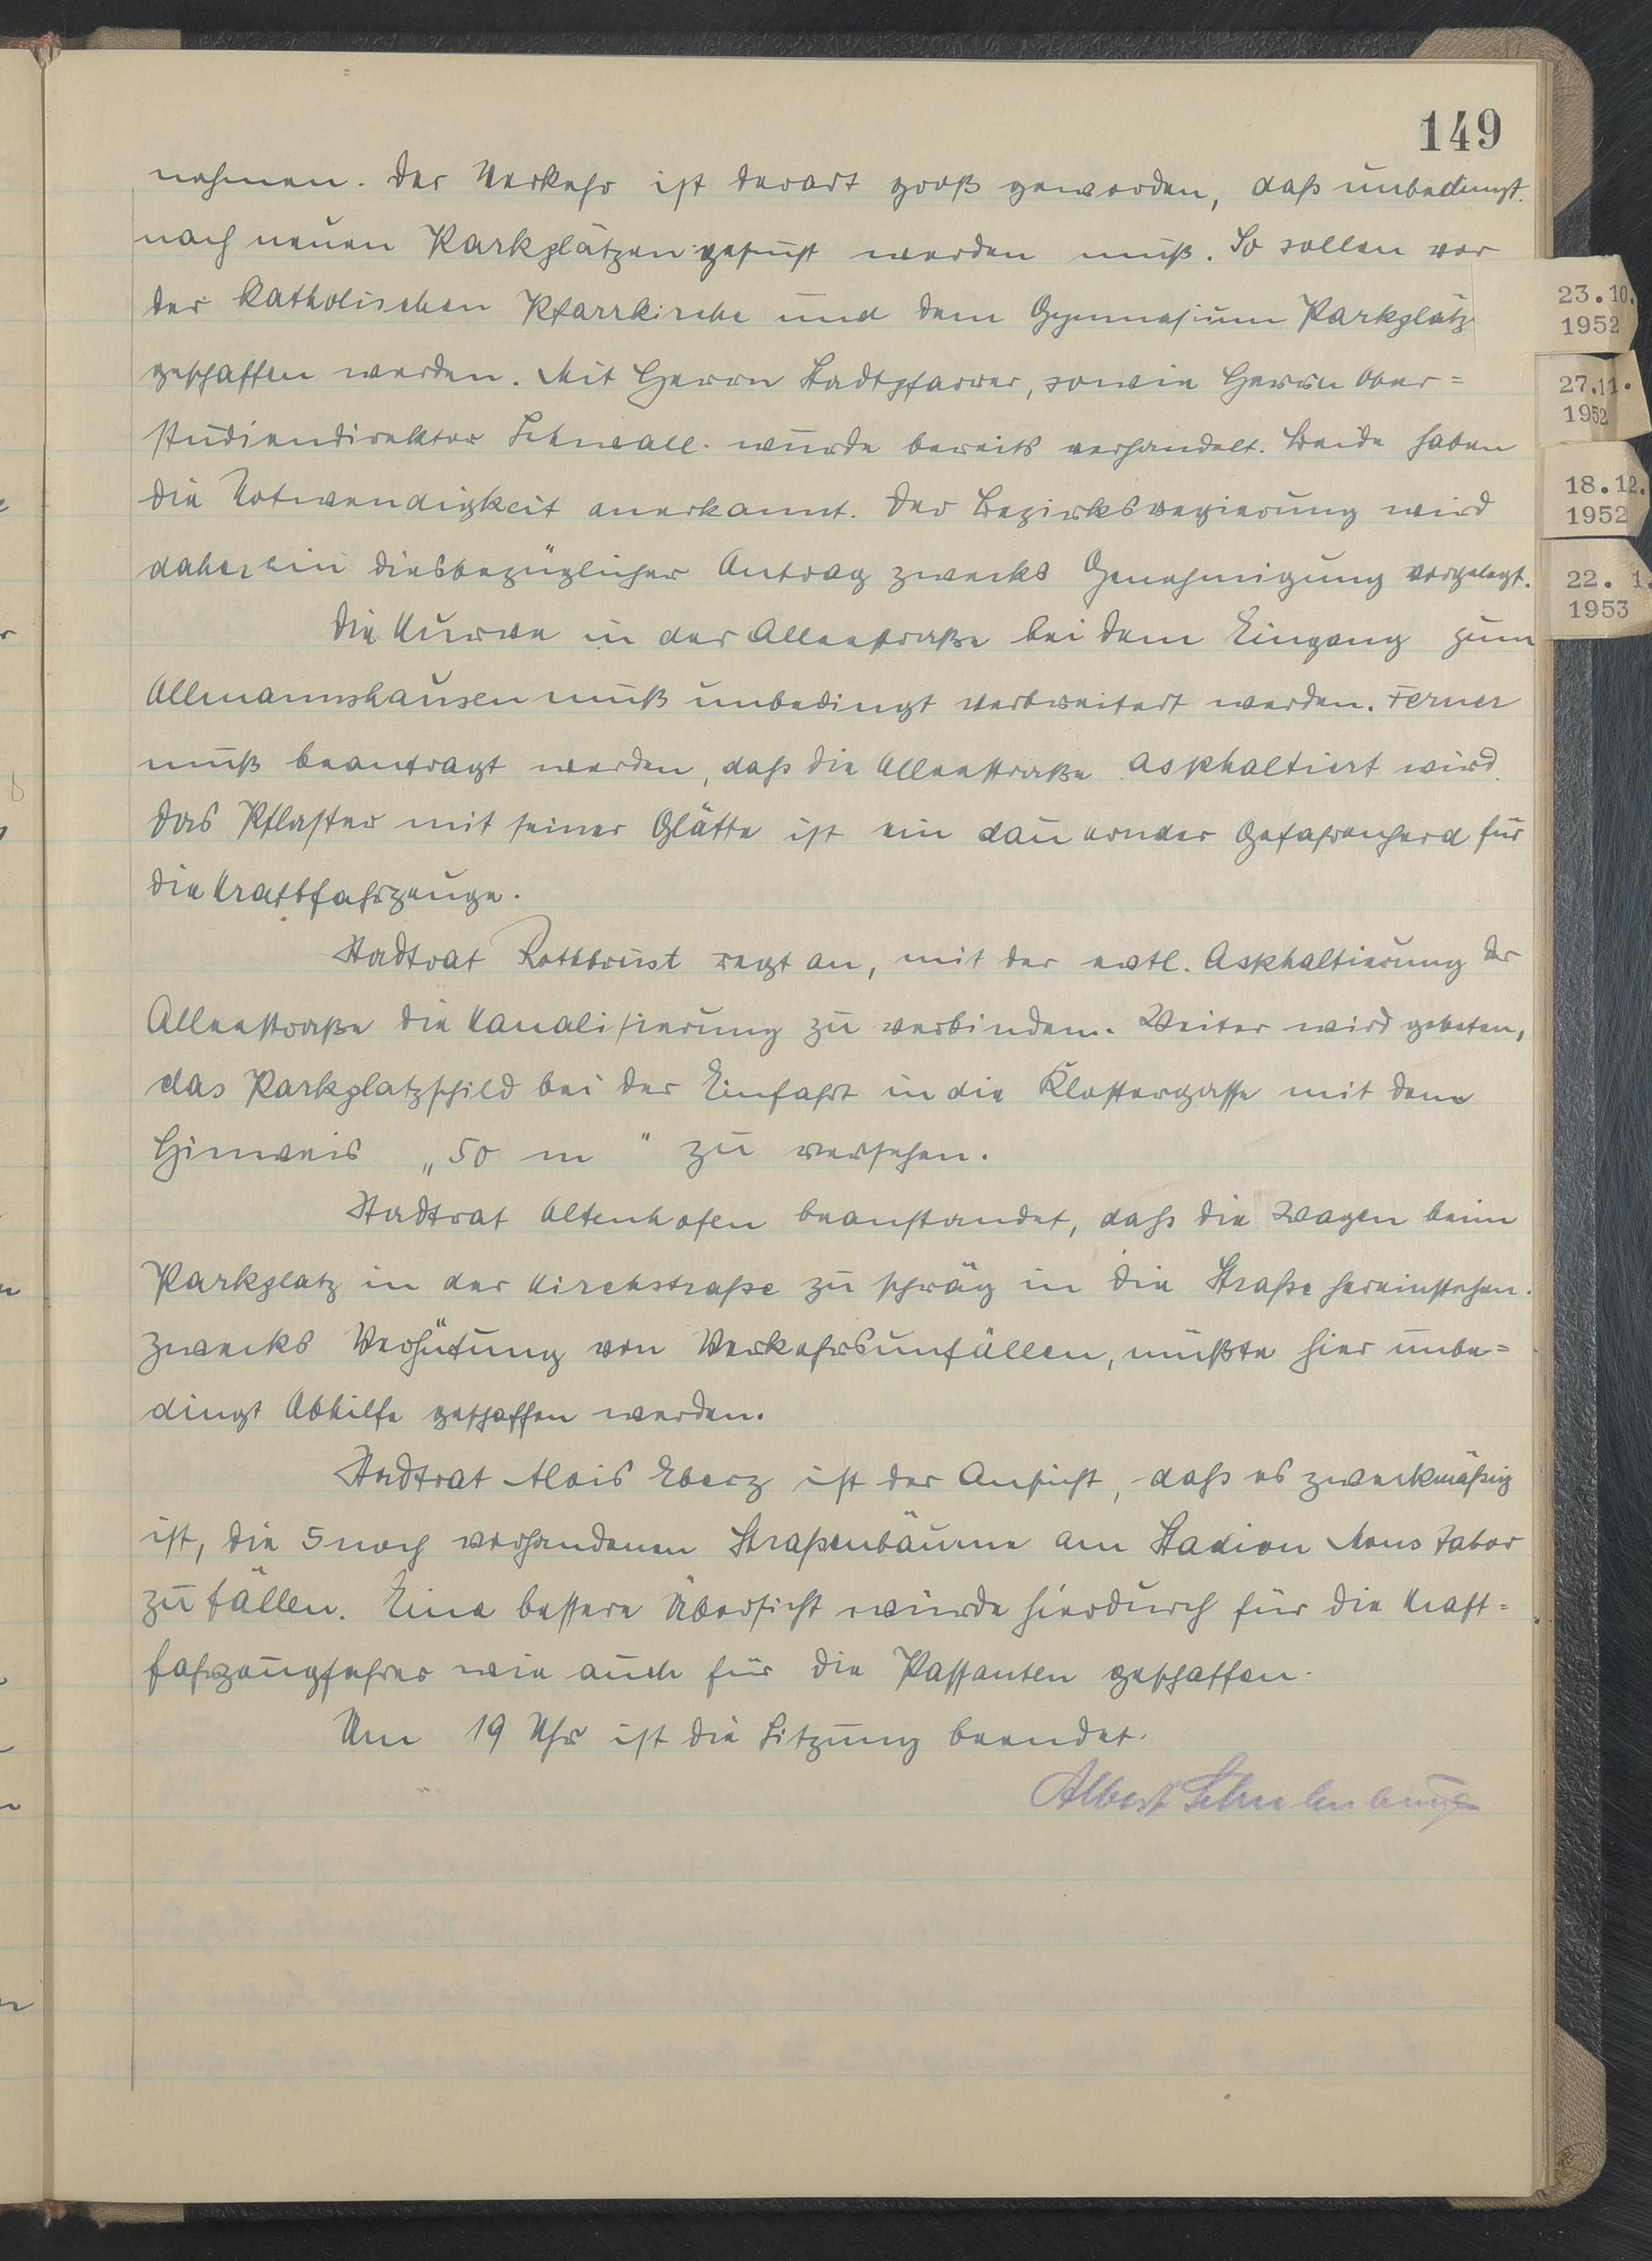 149
nehmen. Der Verkehr ist derart groß geworden, daß unbedingt
nach neuen Parkplätzen gesucht werden muß. So sollen vor
der katholischen Pfarrkirche und dem Gymnasium Parkplätz
geschaffen werden. Mit Herrn Stadtpfarrer, sowie Herrn Ober=
studiendirektor Schwall wurde bereits verhandelt. Beide haben
die Notwendigkeit anerkannt. Der Bezirksregierung wird
daher ein diesbezüglicher Antrag zwecks Genehmigung vorgelegt.
Die Kurve in der Alleestraße bei dem Eingang zum
Allmannshausen muß unbedingt verbreitert werden. Ferner
muß beantragt werden, daß die Alleestraße asphaltiert wird.
Das Pflaster mit seiner Glätte ist ein dauernder Gefahrenherd für
die Kraftfahrzeuge.
Stadtrat Rothbrust regt an, mit der evtl. Asphaltierung der
Alleestraße die Kanalisierung zu verbinden. Weiter wird gebeten,
das Parkplatzschild bei der Einfahrt in die Klostergasse mit dem
Hinweis „50 m" zu versehen.
Stadtrat Altenhofen beanstandet, daß die Wagen beim
Parkplatz in der Kirchstraße zu schräg in die Straße hereinstehen.
Zwecks Verhütung von Verkehrsunfällen, müßte hier unbe=
dingt Abhilfe geschaffen werden.
Stadtrat Alois Eberz ist der Ansicht, daß es zweckmäßig
ist, die 5 noch vorhandenen Straßenbäume am Stadion Mons Tabor
zu fällen. Eine bessere Übersicht würde hierdurch für die Kraft=
fahrzeugfahrer wie auch für die Passanten geschaffen.
Um 19 Uhr ist die Sitzung beendet.
Albert
23.10.
1952
27.11.
1952
18.12.
1952
22. 1.
1953